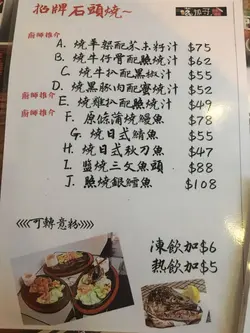 招牌石頭燒~
廚師推介
A. 燒羊架配芥末籽汁 $75
B. 燒牛仔骨配燒汁 $62
C. 燒牛扒配黑椒汁 $55
D. 燒黑豚肉配蜜燒汁 $52
廚師推介
E. 燒雞扒配燒汁 $49
廚師推介
F. 原條蒲燒鰻魚 $78
G. 燒日式鯖魚 $55
H. 燒日式秋刀魚 $47
I. 鹽燒三文魚頭 $88
J. 燒銀鱈魚 $108
<<<<可轉意粉>>>>
凍飲加$6
熱飲加$5